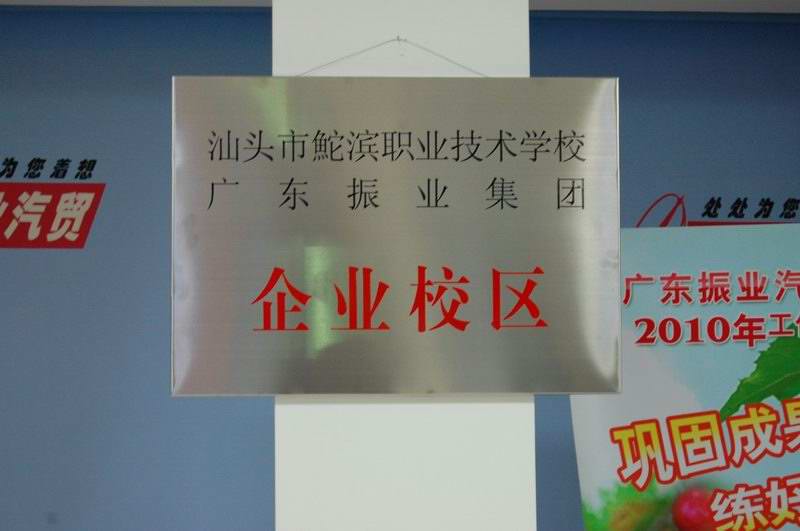 汕头市鮀滨职业技术学校
广东振业集团
企业校区
为您着想
业汽贸
处处为您
广东振业汽
2010年工
巩固成果
练好